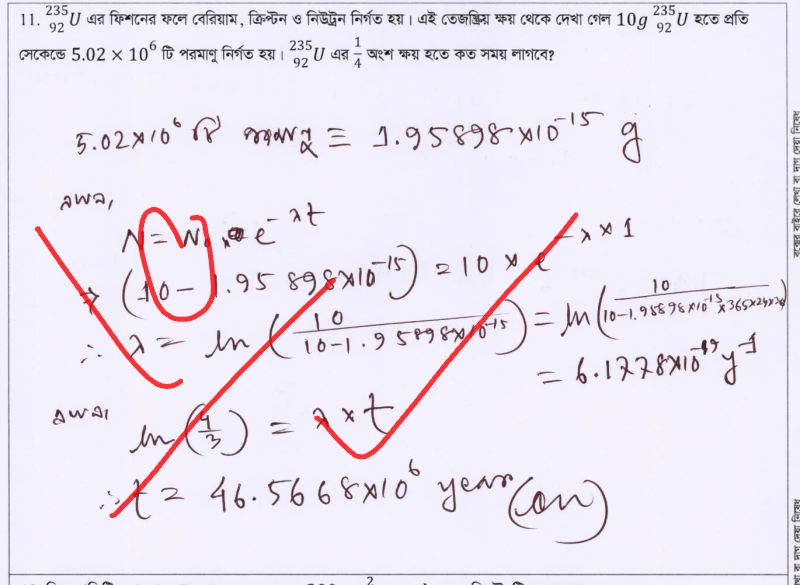 11. ²³⁵₉₂U এর ফিশনের ফলে বেরিয়াম, ক্রিপ্টন ও নিউট্রন নির্গত হয়। এই তেজস্ক্রিয় ক্ষয় থেকে দেখা গেল 10g ²³⁵₉₂U হতে প্রতি
সেকেন্ডে 5.02 × 10⁶ টি পরমাণু নির্গত হয়। ²³⁵₉₂U এর 1/4 অংশ ক্ষয় হতে কত সময় লাগবে?
5.02×10⁶ টি পরমাণু ≡ 1.95898×10⁻¹⁵ g
এখন,
N = N₀ × e^(-λt)
⇒ (10 - 1.95898×10⁻¹⁵) = 10 × e^(-λ×1)
∴ λ = ln (10/(10-1.95898×10⁻¹⁵)) = ln (10/(10-1.95898×10⁻¹⁵×365×24×
= 6.1778×10 y⁻¹
এখন,
ln(4/3) = λ×t
∴ t = 46.5668×10⁶ year (Ans)